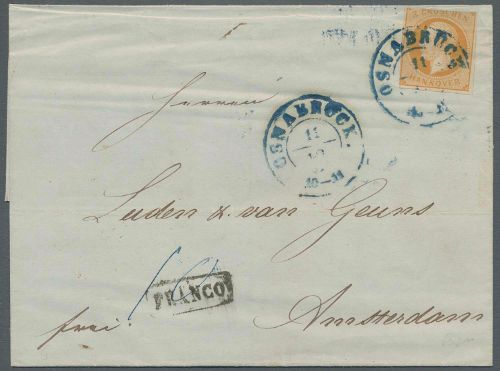 3 GROSCHEN
HANNOVER
OSNABRÜCK
11
OSNABRÜCK.
11
10
10-11
Herren
Luden & van Geuns
FRANCO
frei.
Amsterdam